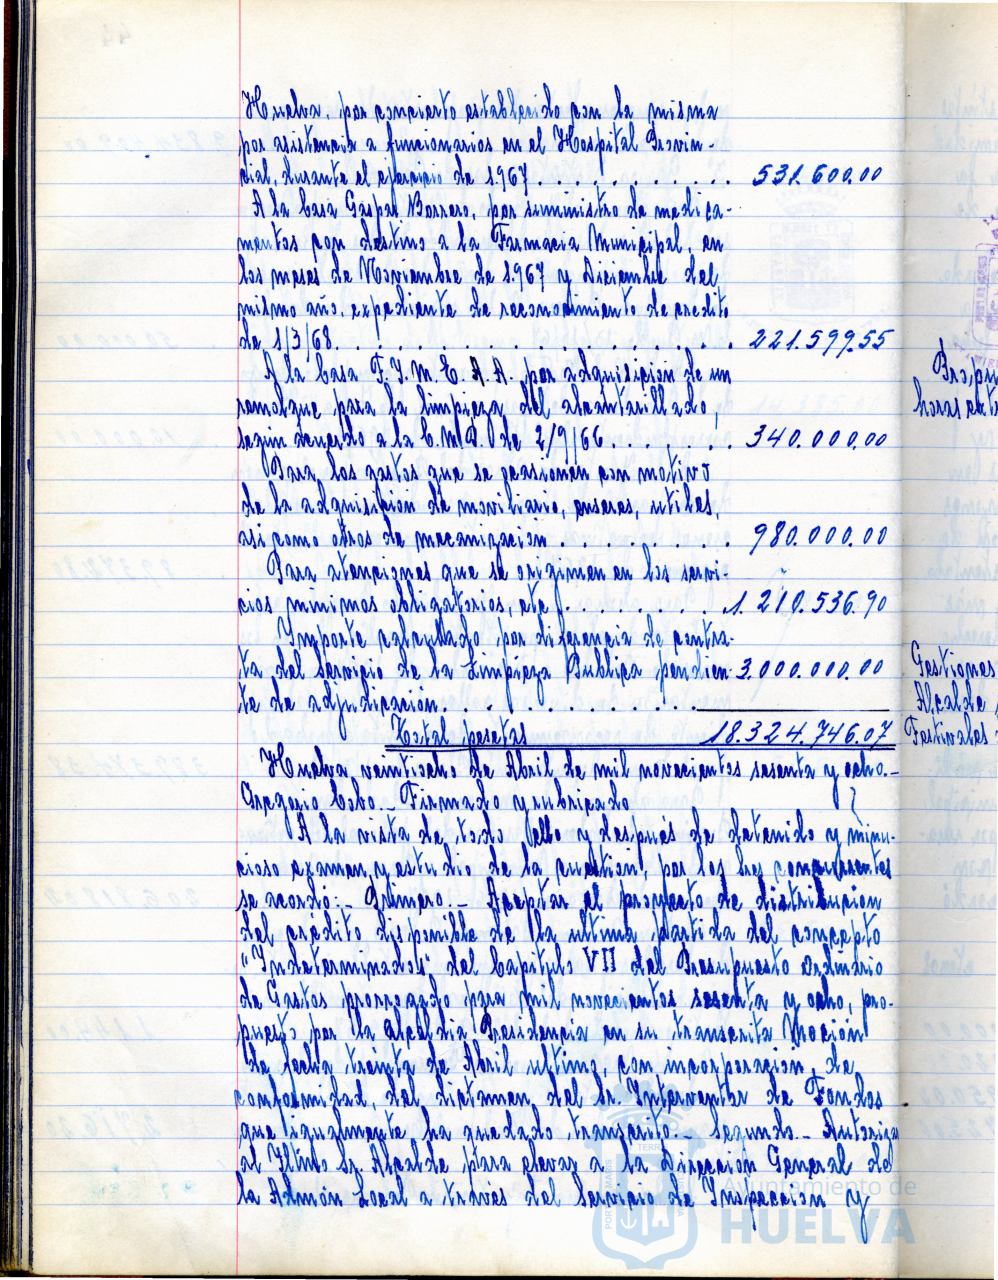 Huelva, por concierto establecido con la misma
por asistencia a funcionarios en el Hospital Provin-
cial, durante el ejercicio de 1.967 . . . . . . . . . . . . 531.600.00
A la Casa Gaspar Barrero, por suministro de medica-
mentos con destino a la Farmacia Municipal, en
los meses de Noviembre de 1.967 y Diciembre del
mismo año, expediente de reconocimiento de credito
de 1/3/68. . . . . . . . . . . . . . . . . 221.599.55
A la Casa F.I.M.E.S.A. por adquisicion de un
remolque para la limpieza del alcantarillado,
según acuerdo a la C.M.P. de 2/9/66 . . . . . . . 340.000.00
Para los gastos que se ocasionen con motivo
de la adquisicion de moviliario, enseres, utiles,
asi como otros de mecanizacion . . . . . . . . . 980.000.00
Para atenciones que se originen en los servi-
cios minimos obligatorios, etc. . . . . . . . 1.210.536.90
Importe calculado por diferencia de contra-
ta del Servicio de la Limpieza Publica pendien- 3.000.000.00
te de adjudicación. . . . . . . . . . .
Total pesetas 18.324.746.07
Huelva veintiocho de Abril de mil novecientos sesenta y ocho.-
Gregorio Cobo.- Firmado y rubricado
A la vista de todo ello y después de detenido y minu-
cioso examen y estudio de la cuestion, por los Sres concurrentes
se acordó:- Primero:- Aceptar el proyecto de distribucion
del crédito disponible de la ultima partida del concepto
"Indeterminados" del Capitulo VII del Presupuesto Ordinario
de Gastos prorrogado para mil novecientos sesenta y ocho, pro-
puesto por la Alcaldia Presidencia en su transcrita Moción
de fecha treinta de Abril ultimo, con incorporacion, de
conformidad, del dictamen del Sr. Interventor de Fondos
que igualmente ha quedado transcrito.- Segundo.- Autorizar
al Iltmo Sr. Alcalde para elevar a la Dirección General de
la Admón Local a través del Servicio de Inspeccion y
horas ext
Gestiones
Alcalde
Festivales
Ayuntamiento de
HUELVA